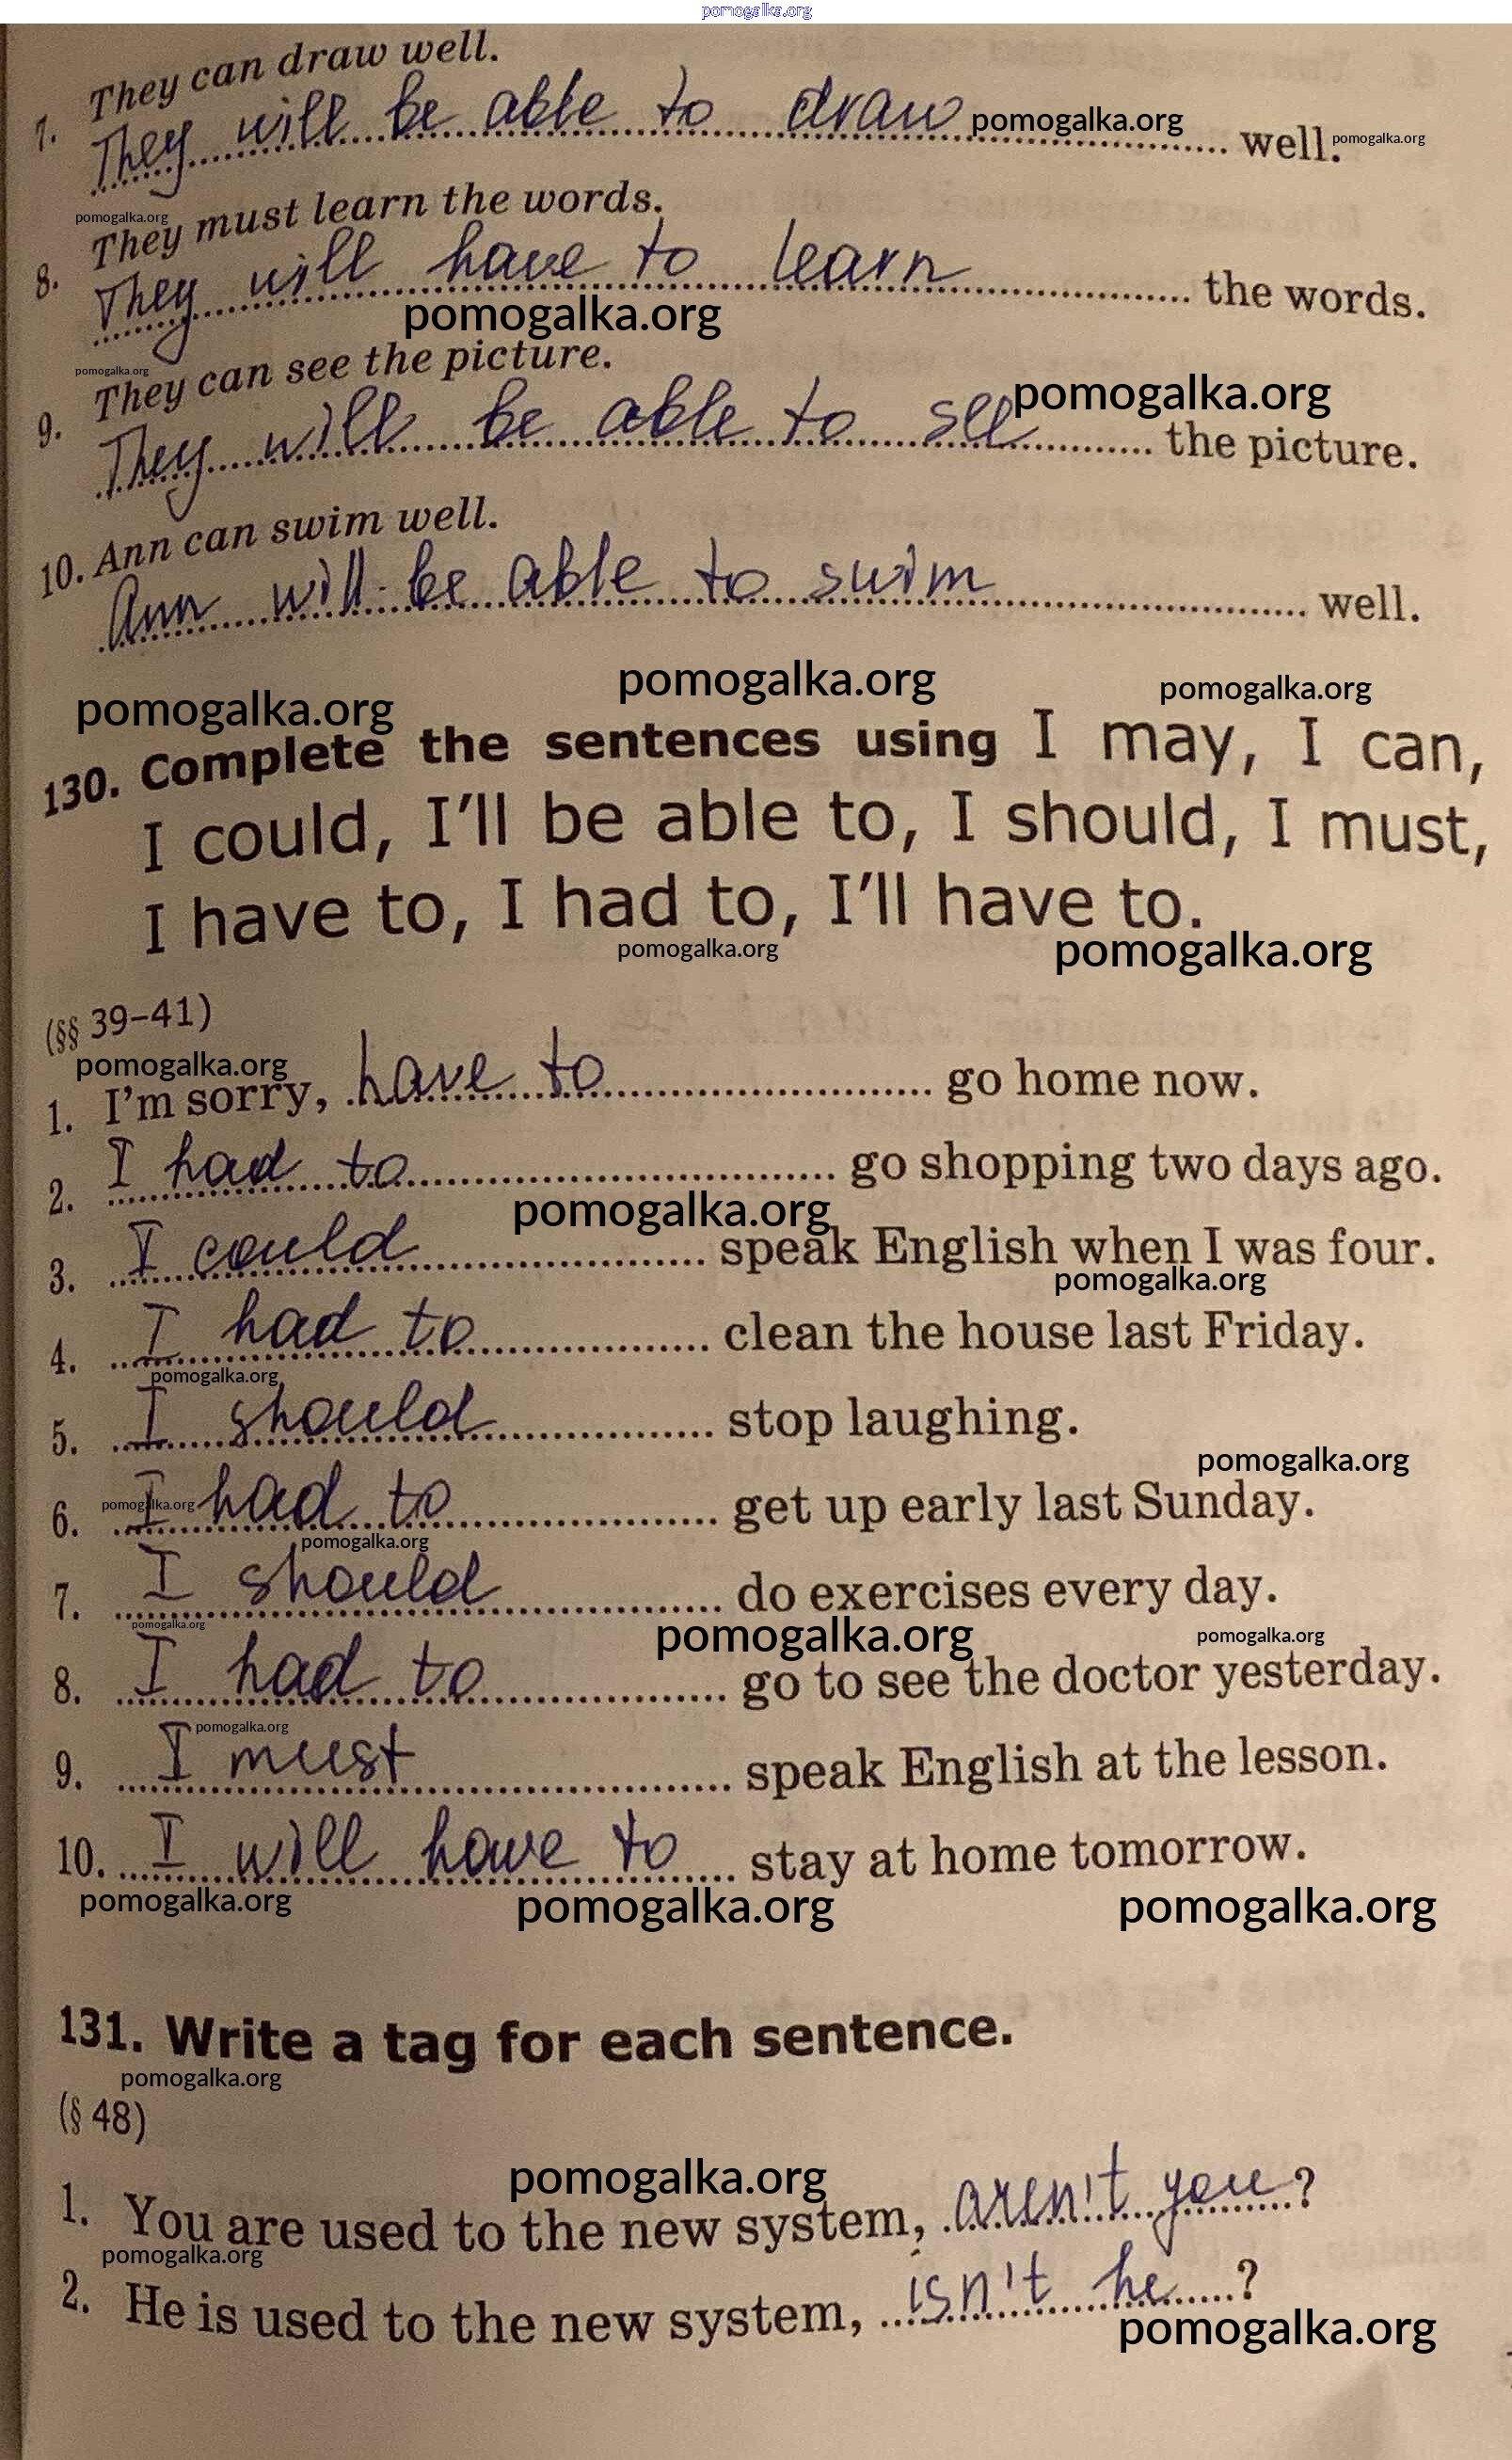 pomogalka.org
They can draw well.
7. They will be able to draw pomogalka.org well. pomogalka.org
pomogalka.org
They must learn the words.
8. They will have to learn the words.
pomogalka.org
pomogalka.org
They can see the picture.
pomogalka.org
9. They will be able to see the picture.
10. Ann can swim well.
Ann will be able to swim well.
pomogalka.org pomogalka.org pomogalka.org
130. Complete the sentences using I may, I can,
I could, I'll be able to, I should, I must,
I have to, I had to, I'll have to.
pomogalka.org pomogalka.org
(§§ 39–41)
pomogalka.org
1. I'm sorry, have to go home now.
2. I had to go shopping two days ago.
pomogalka.org
3. I could speak English when I was four.
pomogalka.org
4. I had to clean the house last Friday.
pomogalka.org
5. I should stop laughing.
pomogalka.org
pomogalka.org
6. I had to get up early last Sunday.
pomogalka.org
7. I should do exercises every day.
pomogalka.org pomogalka.org pomogalka.org
8. I had to go to see the doctor yesterday.
pomogalka.org
9. I must speak English at the lesson.
10. I will have to stay at home tomorrow.
pomogalka.org pomogalka.org pomogalka.org
131. Write a tag for each sentence.
pomogalka.org
(§ 48)
pomogalka.org
1. You are used to the new system, aren't you?
pomogalka.org
2. He is used to the new system, isn't he?
pomogalka.org